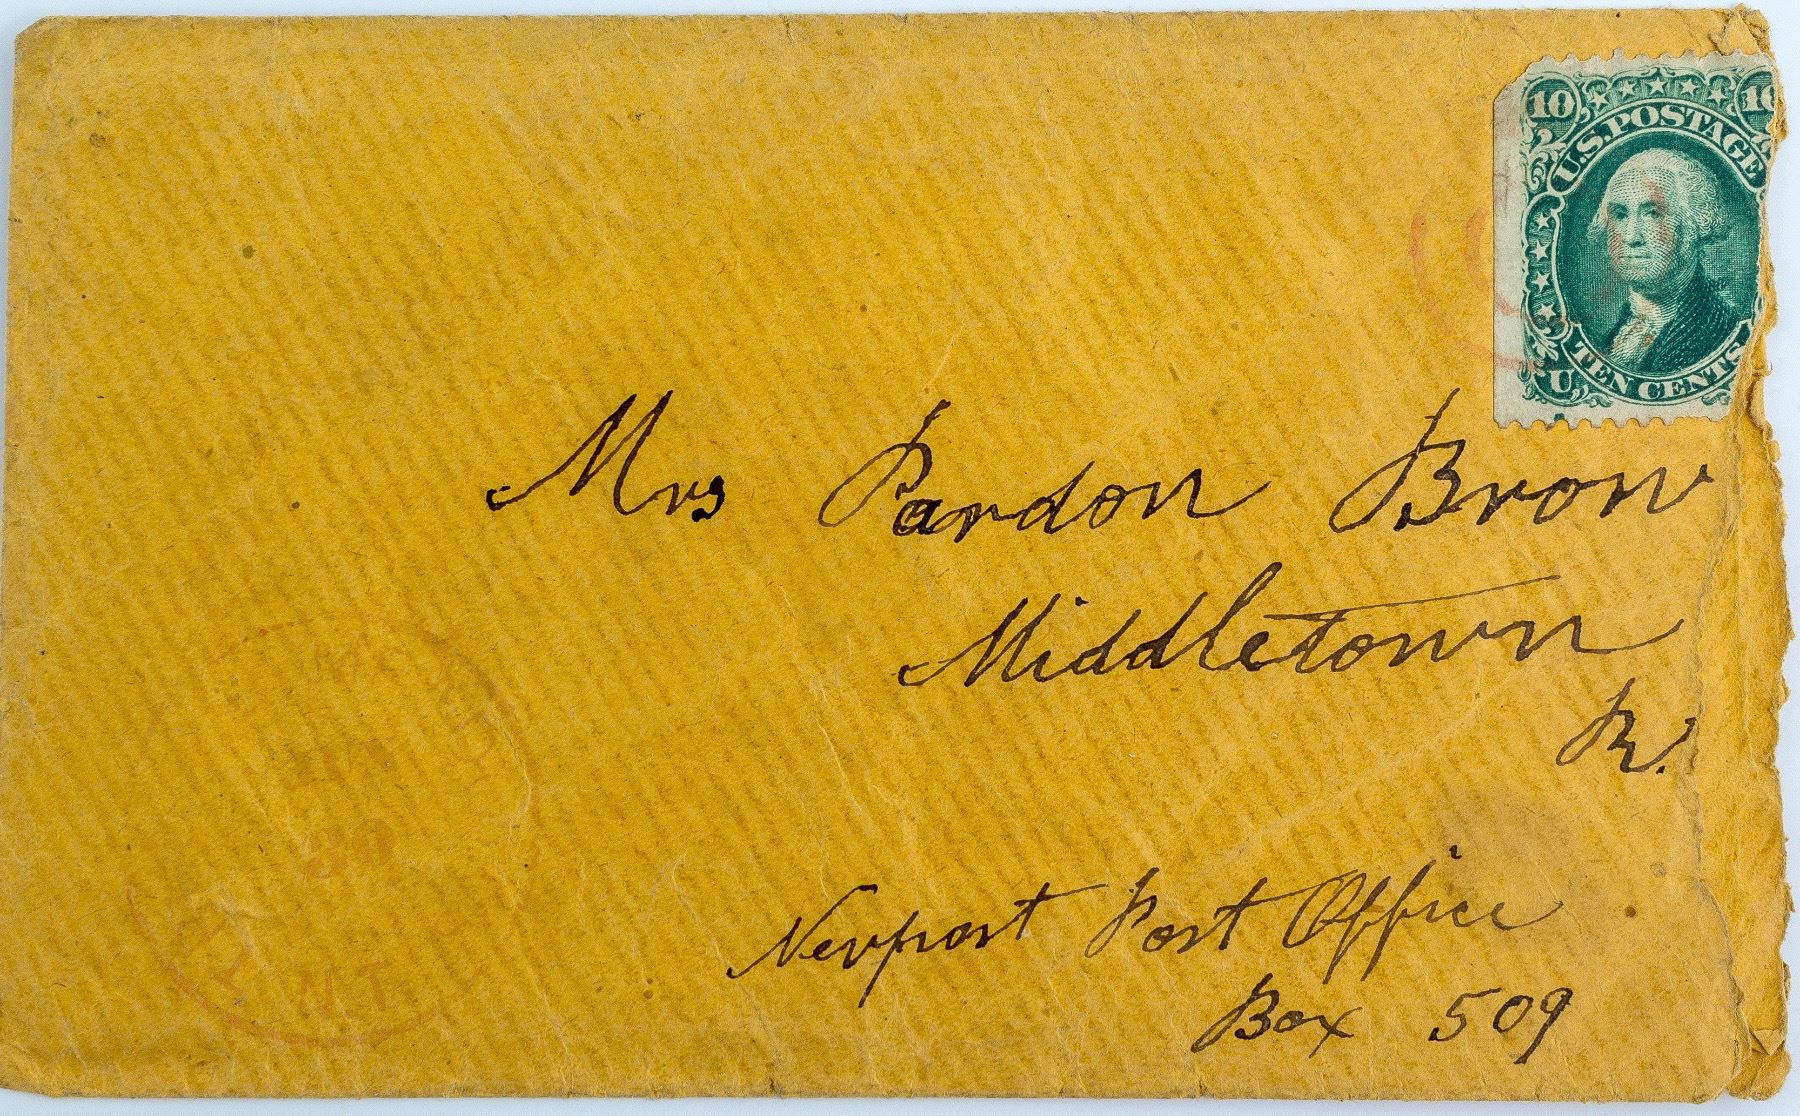 10 10
U.S. POSTAGE
TEN CENTS
U
Mrs Pardon Brow
Middletown
R.
Newport Post Office
Box 509
30